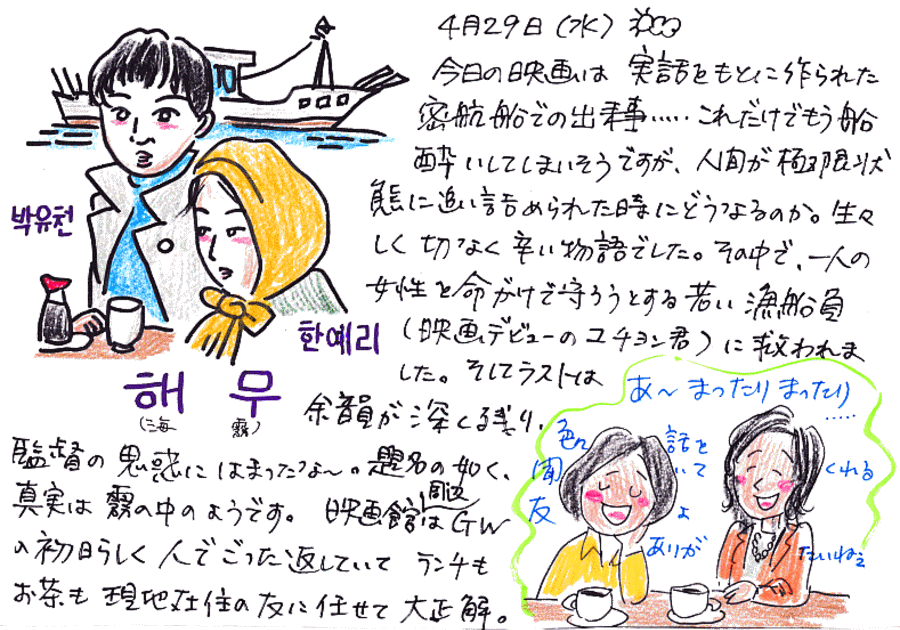 4月29日(水)
今日の映画は 実話をもとに作られた
密航船での出来事…… これだけでもう船
酔いしてしまいそうですが、人間が極限状
態に追い詰められた時にどうなるのか。生々
しく切なく辛い物語でした。その中で、一人の
女性を命がけで守ろうとする若い漁船員
(映画デビューのユチョン君)に救われま
した。そしてラストは
余韻が深く残り、
監督の思惑にはまったな〜。題名の如く、
真実は霧の中のようです。 映画館周辺はGW
の初日らしく人でごった返していて ランチも
お茶も現地在住の友に任せて大正解。
박유천
한예리
해무
(海霧)
あ〜まったりまったり
……
色んな話を
聞いてくれる
友よ
ありがたいねぇ